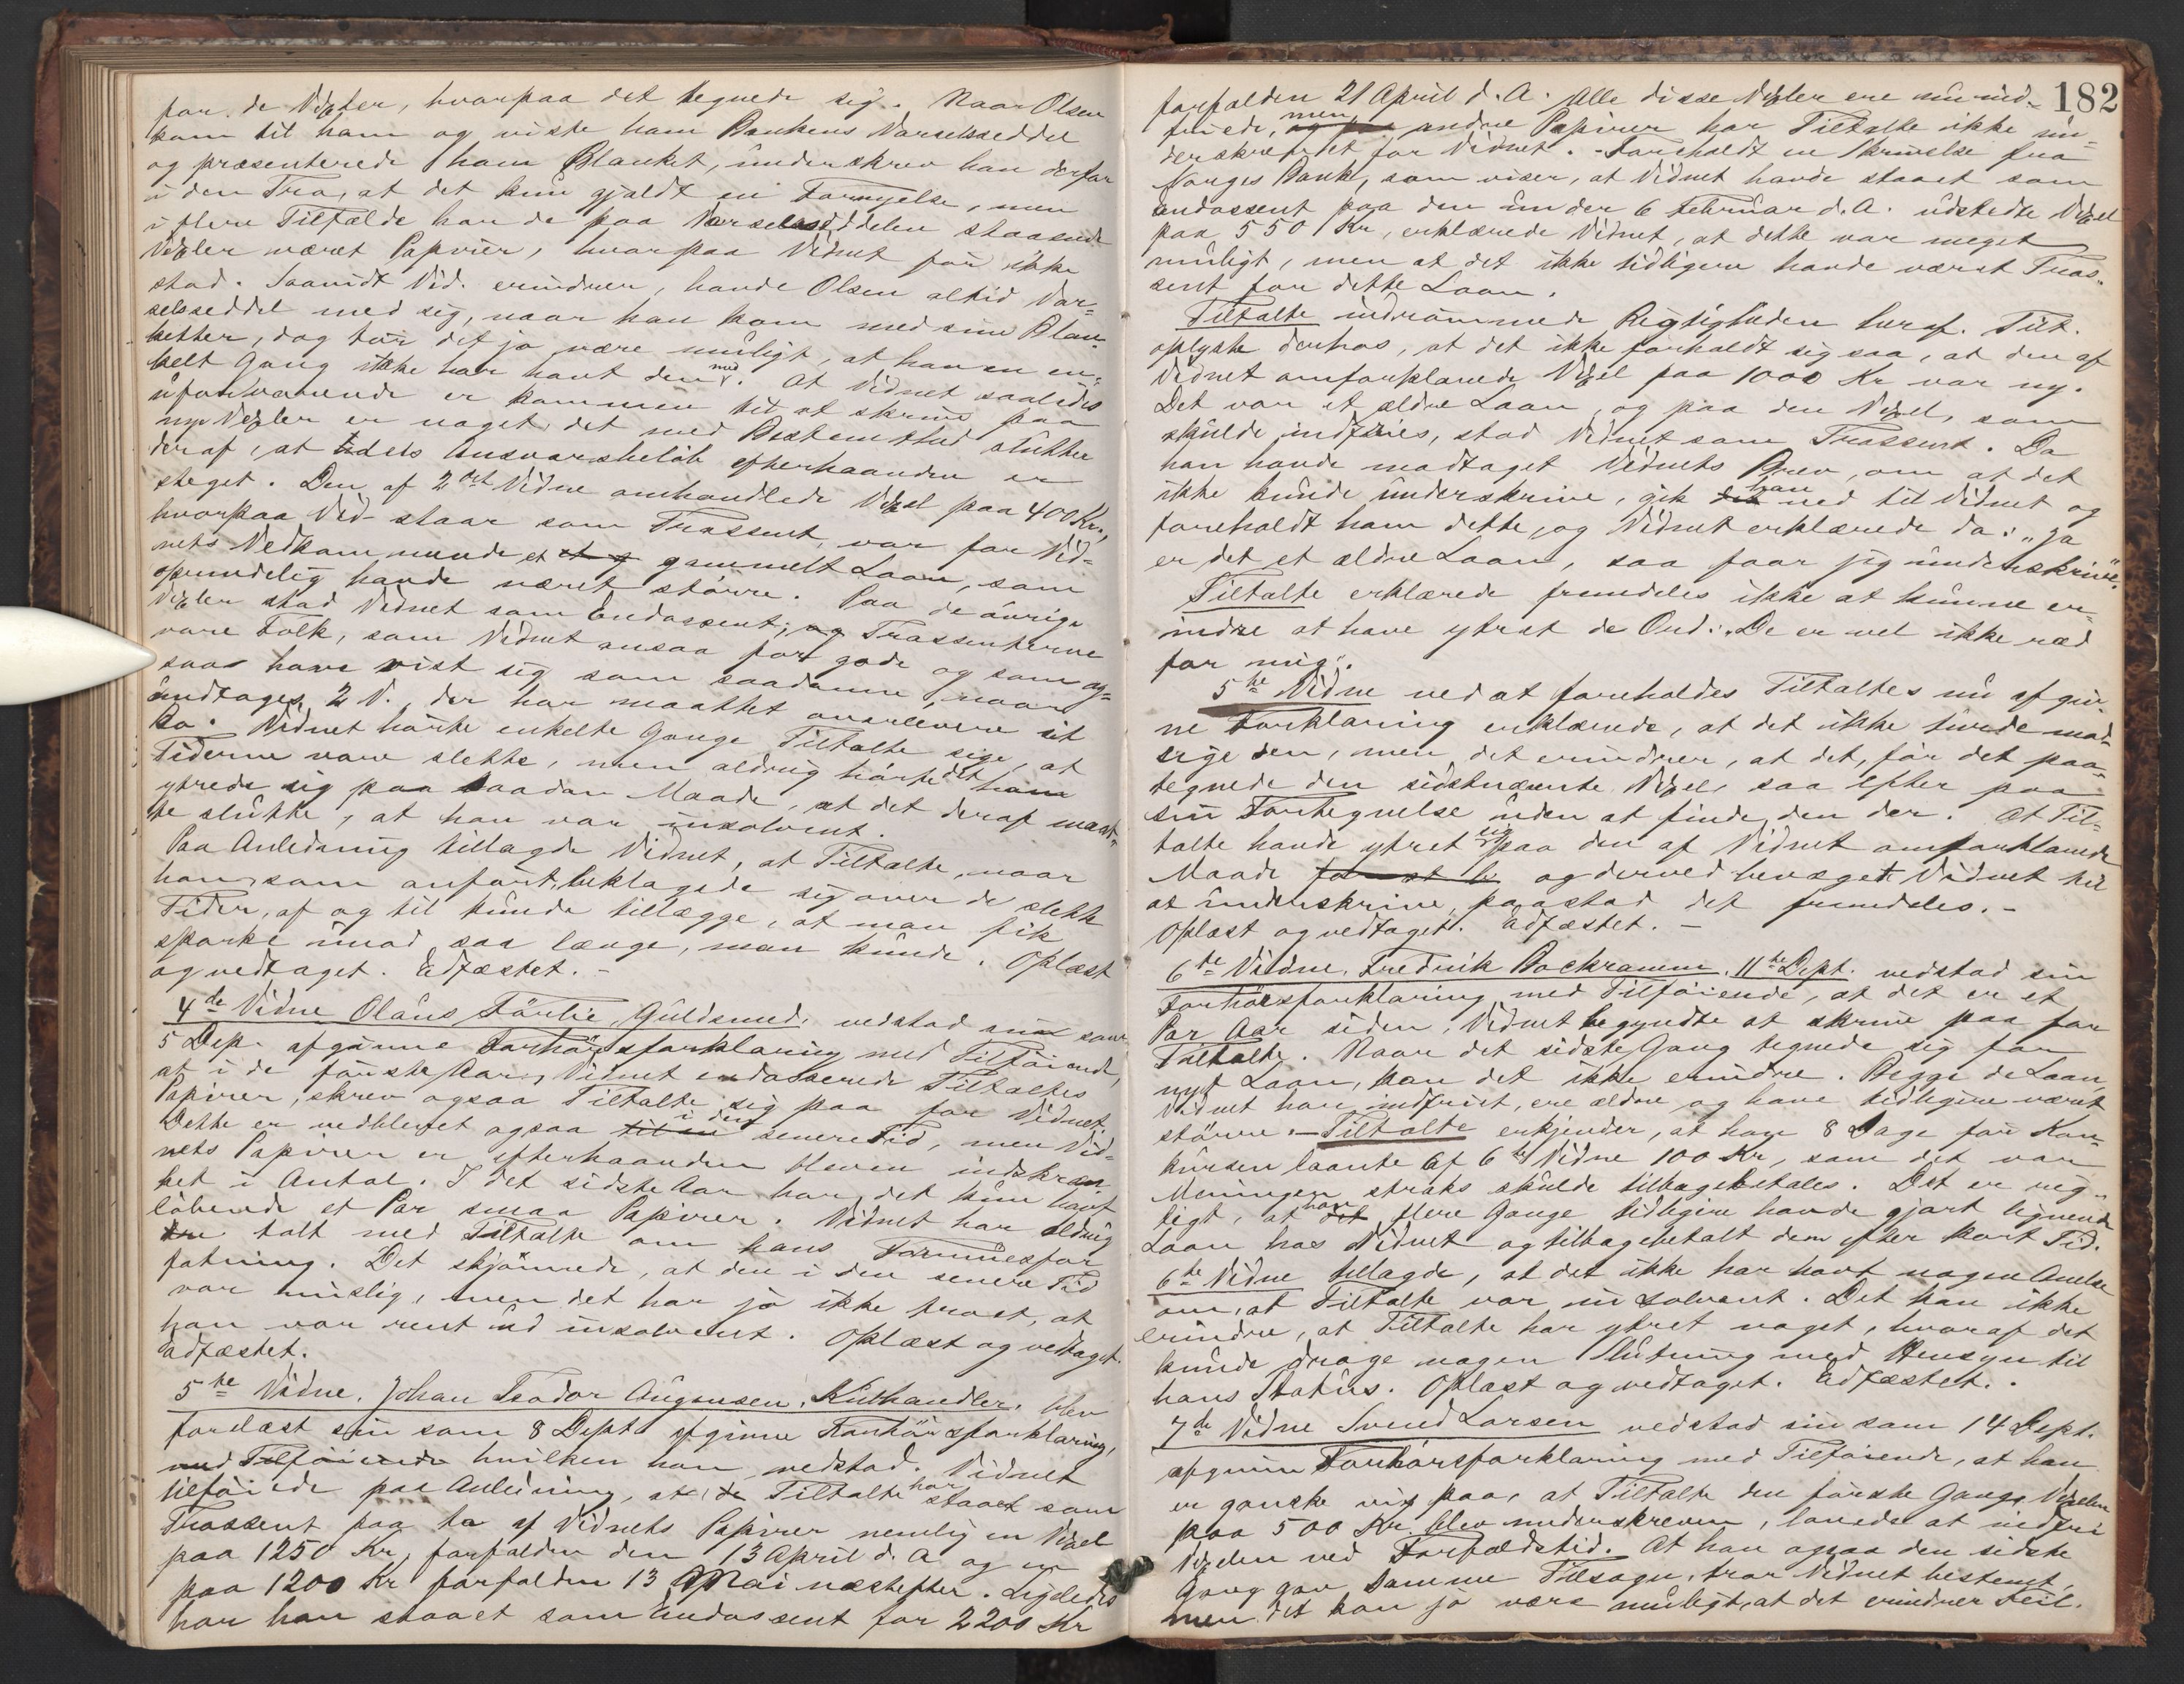 for de Vexler, hvorpaa det tegnede sig. Naar Olsen
kom til ham og viste ham Bankens Varselsseddel
og præsenterede ham Blanket, underskrev han derfor
i den Tro, at det kun gjaldt en Fornyelse, men
i flere Tilfælde har de paa Varselsseddelen staaende
Vexler været Papirer, hvorpaa Vidnet før ikke
stod. Saavidt Vid. erindrer, havde Olsen altid Var-
selsseddel med sig, naar han kom med sine Blan-
ketter, dog tør det jo være muligt, at han en en-
kelt Gang ikke har havt den med. At Vidnet saaledes
uforvarende er kommen til at skrive paa
nye Vexler er noget, det med Bestemthed slutter
deraf, at dets Ansvarsbeløb efterhaanden er
steget. Den af 2det Vidne omhandlede Vexel paa 400 Kr.,
hvorpaa Vid. staar som Trassent, var for Vid-
nets Vedkommende et et g gammelt Laan, som
oprindelig havde været større. Paa de øvrige
Vexler stod Vidnet som Endossent; og Trassenterne
vare Folk, som Vidnet ansaa for gode og som og-
saa have vist sig som saadanne, naar
undtages 2 V. der har maattet overlevere sit
Bo. Vidnet hørte enkelte Gange Tiltalte sige, at
Tiderne vare slette, men aldrig hørte det ham
ytrede sig paa saadan Maade, at det deraf maat-
te slutte, at han var insolvent.
Paa Anledning tillagde Vidnet, at Tiltalte, naar
han, som anført, beklagede sig over de slette
Tider, af og til kunde tillægge, at man fik
sparke imod saa længe, man kunde. Oplæst
og vedtaget. Edfæstet. -
4de Vidne Olaus Färlie, Guldsmed, vedstod sin som
5 Sep. afgivne Forhørsforklaring med Tilføiende,
at i de første Aar, Vidnet endosserede Tiltaltes
Papirer, skrev ogsaa Tiltalte sig paa for Vidnet.
Dette er vedblevet ogsaa til en i den senere Tid, men Vid-
nets Papirer er efterhaanden bleven indskræn-
ket i Antal. I det sidste Aar har det kun havt
løbende et Par smaa Papirer. Vidnet har aldrig
talt med Tiltalte om hans Formuesfor
fatning. Det skjønnede, at den i den senere Tid
var mislig, men det har jo ikke troet, at
han var rent ud insolvent. Oplæst og vedtaget.
Edfæstet.
5te Vidne, Johan Teodor Augensen, Kulhandler, blev
forelæst sin som 8 Septr afgivne Forhørsforklaring,
med Tilføiende hvilken han vedstod. Vidnet
tilføiede paa Anledning, at de Tiltalte har staaet som
Trassent paa to af Vidnets Papirer nemlig en Vexel
paa 1250 Kr, forfalden den 13 April d. A. og en
paa 1200 Kr forfalden 13 Mai næstefter. Ligeledes
har han staaet som Endossent for 2200 Kr
182
forfalden 21 April d. A. Alle disse Vexler ere nu ind-
friede, og paa men andre Papirer har Tiltalte ikke un-
derskrevet for Vidnet. - Foreholdt en Skrivelse fra
Norges Bank, som viser, at Vidnet havde staaet som
Endossent paa den under 6 Februar d. A. udstedte Vexel
paa 550 Kr, erklærede Vidnet, at dette var meget
muligt, men at det ikke tidligere havde været Tras-
sent for dette Laan.
Tiltalte indrømmede Rigtigheden heraf. Tilt.
oplyste derhos, at det ikke forholdt sig saa, at den af
Vidnet omforklarede Vexel paa 1000 Kr var ny.
Det var et ældre Laan, og paa den Vexel, som
skulde indfries, stod Vidnet som Trassent. Da
han havde modtaget Vidnets Brev, om at det
ikke kunde underskrive, gik det han ned til Vidnet og
foreholdt ham dette, og Vidnet erklærede da: „Ja
er det et ældre Laan, saa faar jeg underskrive."
Tiltalte erklærede fremdeles ikke at kunne er-
indre at have ytret de Ord: „De er vel ikke ræd
for mig".
5te Vidne ved at foreholdes Tiltaltes nu afgiv-
ne Forklaring erklærede, at det ikke turde mod-
sige den, men det erindrer, at det, før det paa-
tegnede den sidstnævnte Vexel, saa efter paa
sin Fortegnelse uden at finde den der. At Til-
talte havde ytret sig paa den af Vidnet omforklarede
Maade for at b og derved bevæget Vidnet til
at underskrive, paastod det fremdeles. -
Oplæst og vedtaget. Edfæstet. -
6te Vidne, Fredrik Bockramm, 11te Sept. vedstod sin
Forhørsforklaring med Tilføiende, at det er et
Par Aar siden, Vidnet begyndte at skrive paa for
Tiltalte. Naar det sidste Gang tegnede sig for
nyt Laan, kan det ikke erindre. Begge de Laan,
Vidnet har indfriet, ere ældre og have tidligere været
større. - Tiltalte erkjender, at han 8 Dage før Kon-
kursen laante af 6te Vidne 100 Kr, som det var
Meningen straks skulde tilbagebetales. Det er rig-
tigt, at det han flere Gange tidligere havde gjort lignende
Laan hos Vidnet og tilbagebetalt dem efter kort Tid.
6te Vidne tillagde, at det ikke har havt nogen Anelse
om, at Tiltalte var insolvent. Det kan ikke
erindre, at Tiltalte har ytret noget, hvoraf det
kunde drage nogen Slutning med Hensyn til
hans Status. Oplæst og vedtaget. Edfæstet. -
7de Vidne Svend Larsen vedstod sin som 14 Sept.
afgivne Forhørsforklaring med Tilføiende, at han
er ganske vis paa, at Tiltalte den første Gang, Vexelen
paa 500 Kr. blev underskreven, lovede at indfri
Vexelen ved Forfaldstid. At han ogsaa den sidste
Gang gav samme Tilsagn, tror Vidnet bestemt,
men det kan jo være muligt, at det erindrer Feil.